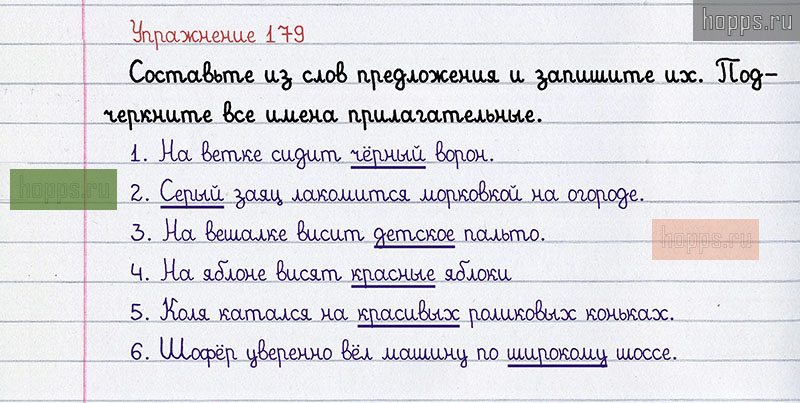 hopps.ru
Упражнение 179
Составьте из слов предложения и запишите их. Под-
черкните все имена прилагательные.
1. На ветке сидит чёрный ворон.
hopps.ru
2. Серый заяц лакомится морковкой на огороде.
3. На вешалке висит детское пальто.
hopps.ru
4. На яблоне висят красные яблоки
5. Коля катался на красивых роликовых коньках.
6. Шофёр уверенно вёл машину по широкому шоссе.